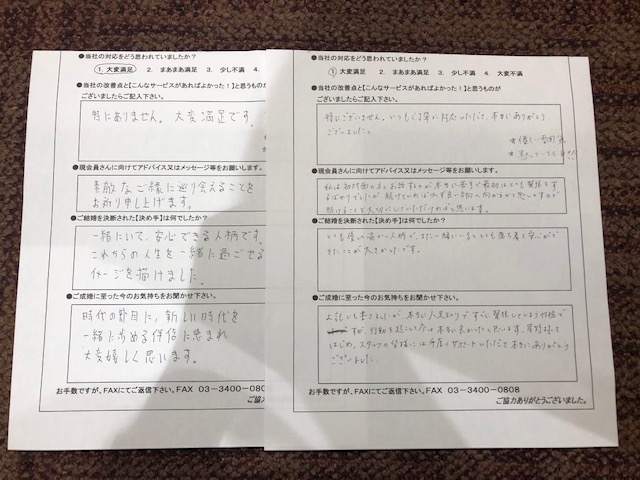 ●当社の対応をどう思われていましたか？
1 大変満足 2. まあまあ満足 3. 少し不満 4.
●当社の改善点と【こんなサービスがあればよかった！】と思うものが
ございましたらご記入下さい。
特にありません。大変満足です。
●現会員さんに向けてアドバイス又はメッセージ等をお願いします。
素敵なご縁に巡り会えることを
お祈り申し上げます。
●ご結婚を決断された【決め手】は何でしたか？
一緒にいて、安心できる人柄です。
これからの人生を一緒に過ごせる
イメージを描けました。
●ご成婚に至った今のお気持ちをお聞かせ下さい。
時代の節目に、新しい時代を
一緒に歩める伴侶に恵まれ
大変嬉しく思います。
お手数ですが、FAXにてご返信下さい。FAX 03-3400-080
ご協力
●当社の対応をどう思われていましたか？
1 大変満足 2. まあまあ満足 3. 少し不満 4. 大変不満
●当社の改善点と【こんなサービスがあればよかった！】と思うものが
ございましたらご記入下さい。
特にございません。いつもご丁寧に対応いただいて、本当にありがとう
ございました。
●現会員さんに向けてアドバイス又はメッセージ等をお願いします。
私は初対面の方とお話するのが本当に苦手で最初はとても緊張
●ご結婚を決断された【決め手】は何でしたか？
とても優しく温かい人柄で、また一緒にいるととても落ち着き安心がで
きたことが大きかったです。
●ご成婚に至った今のお気持ちをお聞かせ下さい。
今は本当に良かったと思います。
はじめ、スタッフの皆様には
サポートいただいて本当にありがとう
ございました。
お手数ですが、FAXにてご返信下さい。FAX 03-3400-0808
ご協力ありがとうございました。